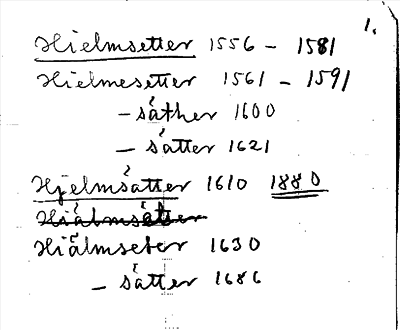 1.
Hielmsetter 1556 – 1581
Hielmesetter 1561 – 1591
– såther 1600
– såtter 1621
Hjelmsåtter 1610 1880
Hiälmsätter
Hiälmseter 1630
– såtter 1686